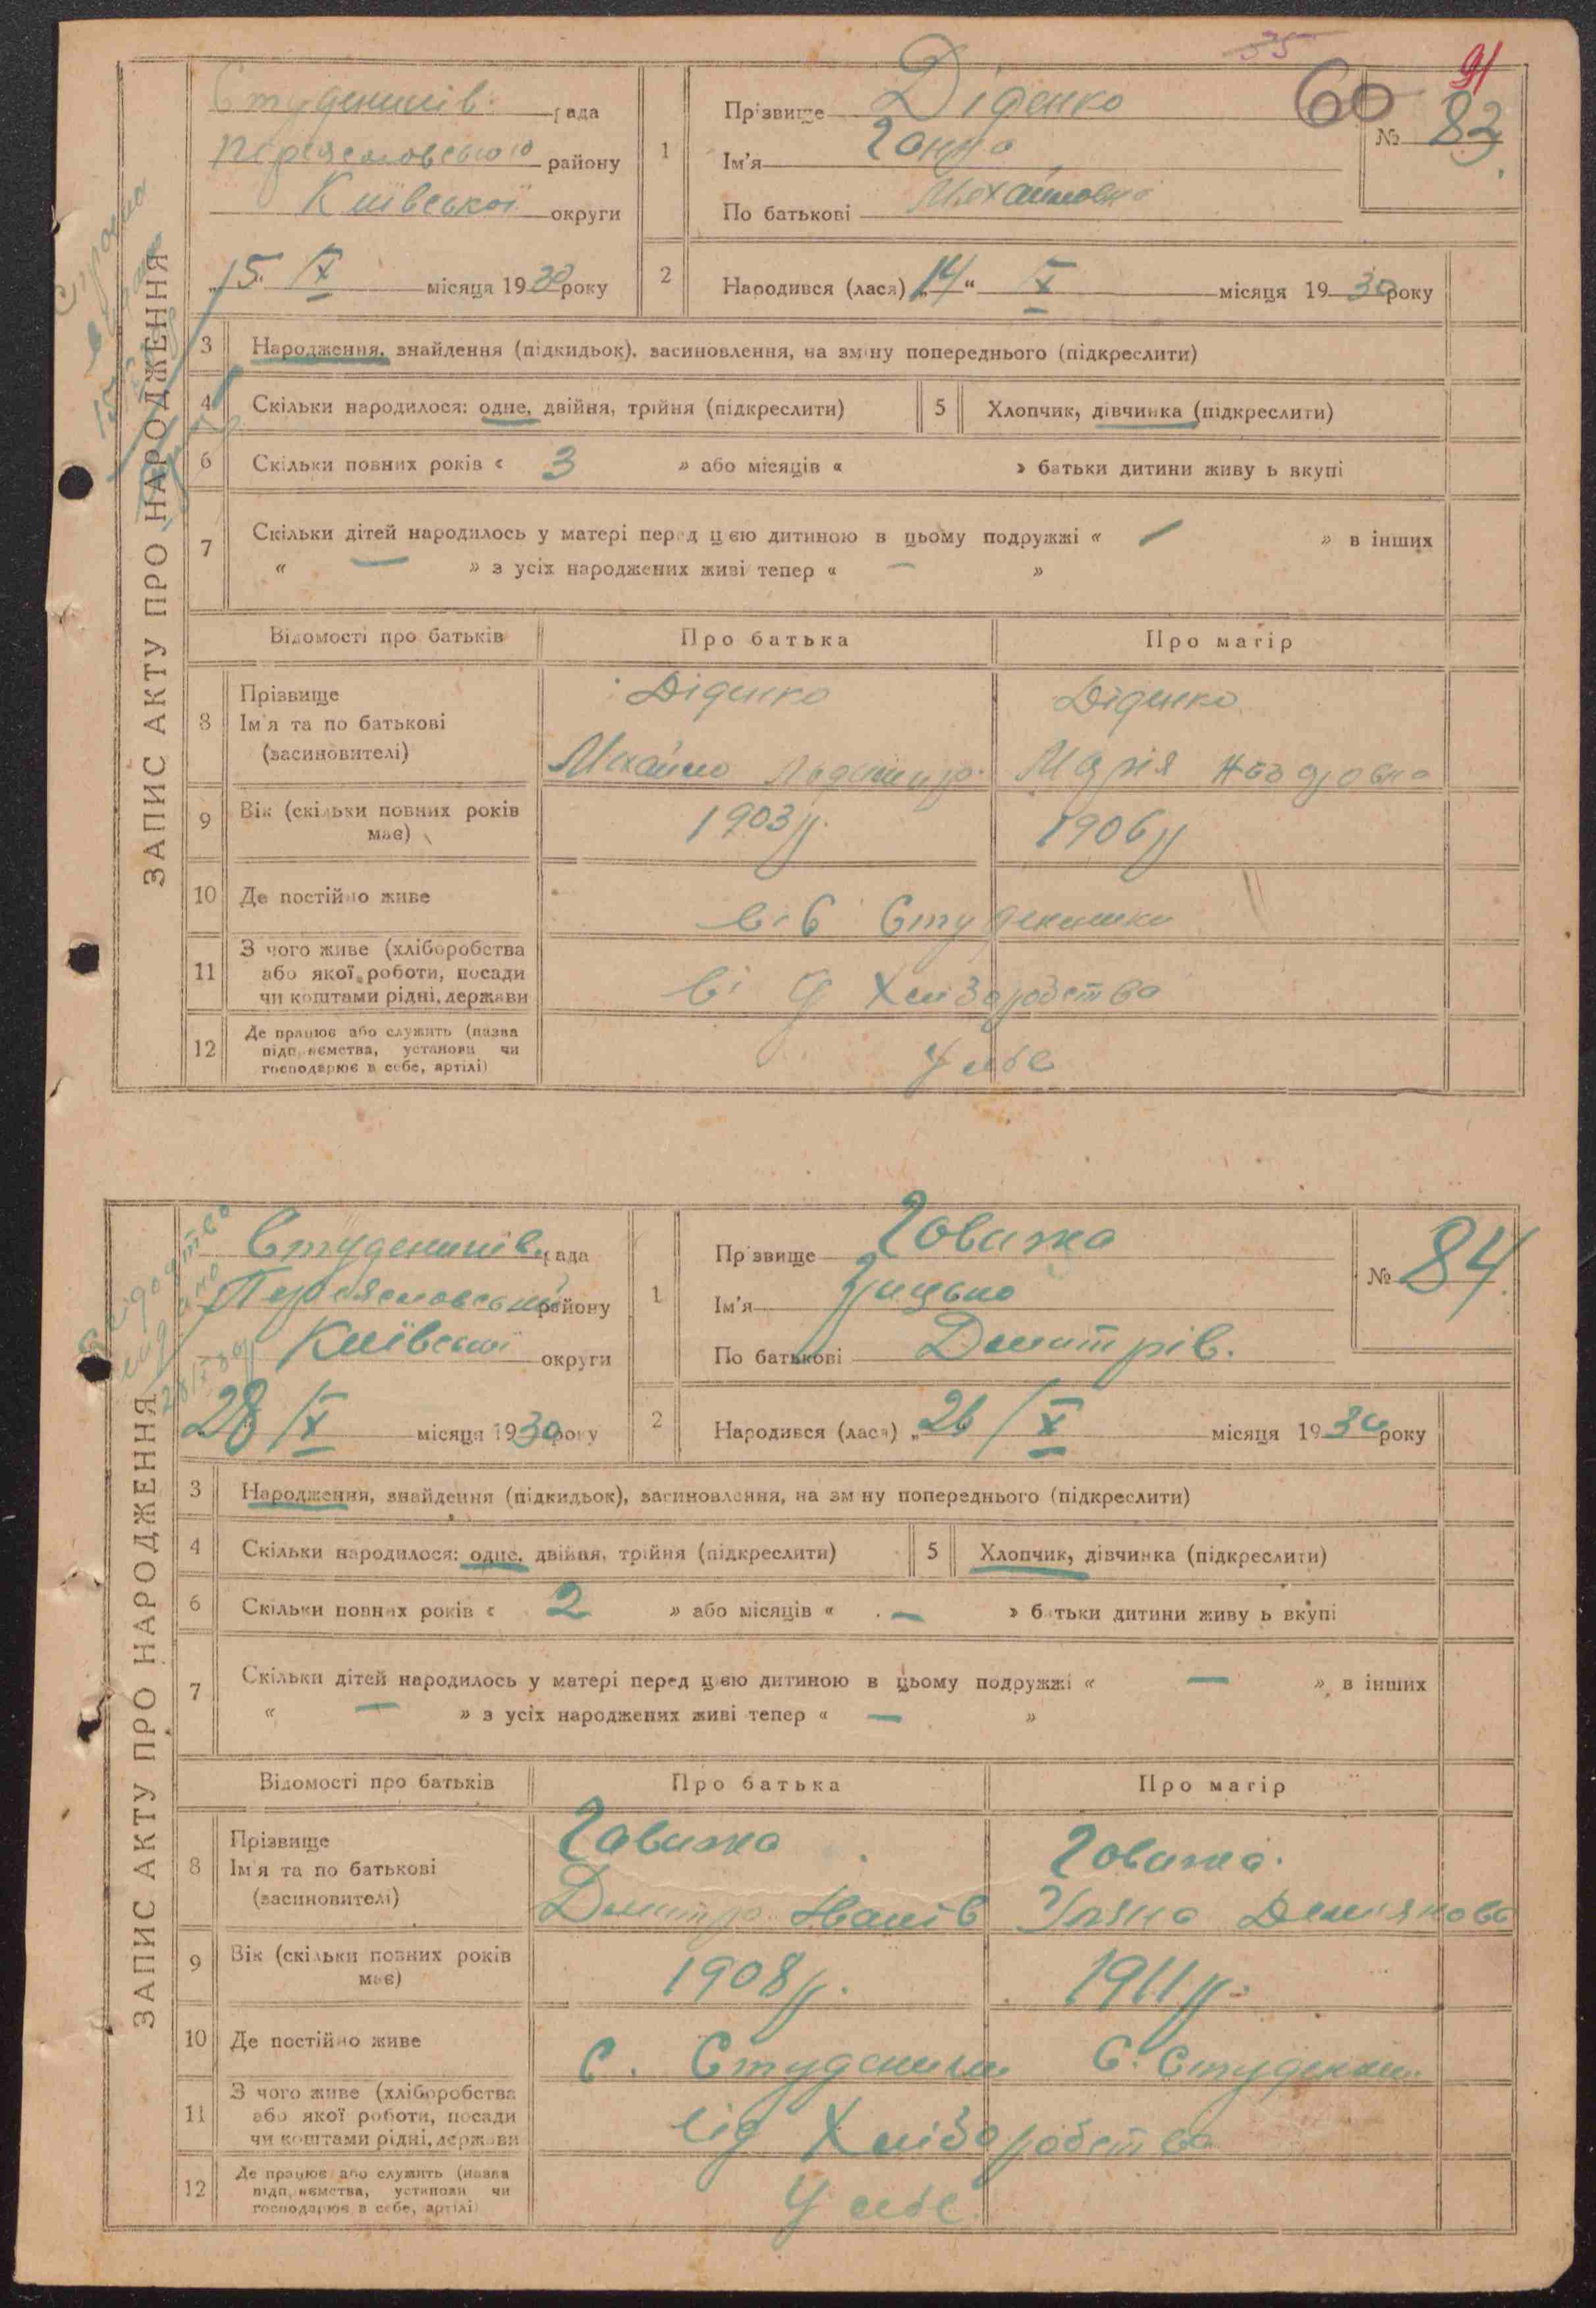 35
60
91
ЗАПИС АКТУ ПРО НАРОДЖЕННЯ
Студеників. рада
Переяславського району
Київської округи
„15. IX місяця 1930 року
1
Прізвище Діденко
Ім'я Ганна
По батькові Михайловна
№ 83
2
Народився (лася) „14“ IX місяця 1930 року
3 Народження, знайдення (підкидьок), засиновлення, на зміну попереднього (підкреслити)
4 Скільки народилося: одне, двійня, трійня (підкреслити) 5 Хлопчик, дівчинка (підкреслити)
6 Скільки повних років « 3 » або місяців « » батьки дитини живуть вкупі
7 Скільки дітей народилось у матері перед цією дитиною в цьому подружжі « — » в інших
« — » з усіх народжених живі тепер « — »
Відомості про батьків Про батька Про матір
8 Прізвище
Ім'я та по батькові
(засиновителі)
Діденко Діденко
Михайло Марія
9 Вік (скільки повних років має) 1903 р. 1906 р
10 Де постійно живе Студеники
11 З чого живе (хліборобства
або якої роботи, посади
чи коштами рідні, держави
від Хліборобства
12 Де працює або служить (назва
підприємства, установи чи
господарює в себе, артілі)
У себе
ЗАПИС АКТУ ПРО НАРОДЖЕННЯ
Студеників. рада
Переяславської району
Київської округи
28 IX місяця 1930 року
1
Прізвище Говижа
Ім'я Грицько
По батькові Дмитрів.
№ 84
2
Народився (лася) „26 IX місяця 1930 року
3 Народження, знайдення (підкидьок), засиновлення, на зміну попереднього (підкреслити)
4 Скільки народилося: одне, двійня, трійня (підкреслити) 5 Хлопчик, дівчинка (підкреслити)
6 Скільки повних років « 2 » або місяців « — » батьки дитини живуть вкупі
7 Скільки дітей народилось у матері перед цією дитиною в цьому подружжі « — » в інших
« — » з усіх народжених живі тепер « — »
Відомості про батьків Про батька Про матір
8 Прізвище
Ім'я та по батькові
(засиновителі)
Говижа Говижа.
Дмитро Іванів Уляна Демянова
9 Вік (скільки повних років має) 1908 р. 1911 р.
10 Де постійно живе с. Студеники С. Студеники
11 З чого живе (хліборобства
або якої роботи, посади
чи коштами рідні, держави
від Хліборобства
12 Де працює або служить (назва
підприємства, установи чи
господарює в себе, артілі)
У себе.